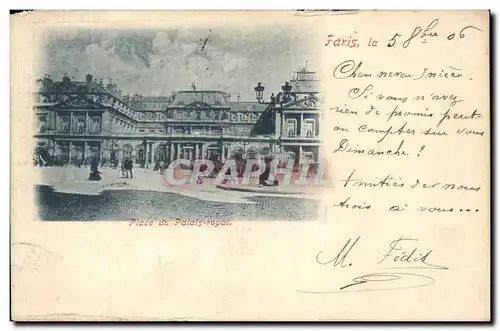 Paris, le 5 8bre 06
Cher neveu
Si vous n'avez
rien de promis peut
on compter sur vous
Dimanche ?
Amitiés de nous
trois à vous ...
M.
Place du Palais-royal.
CPARAMA